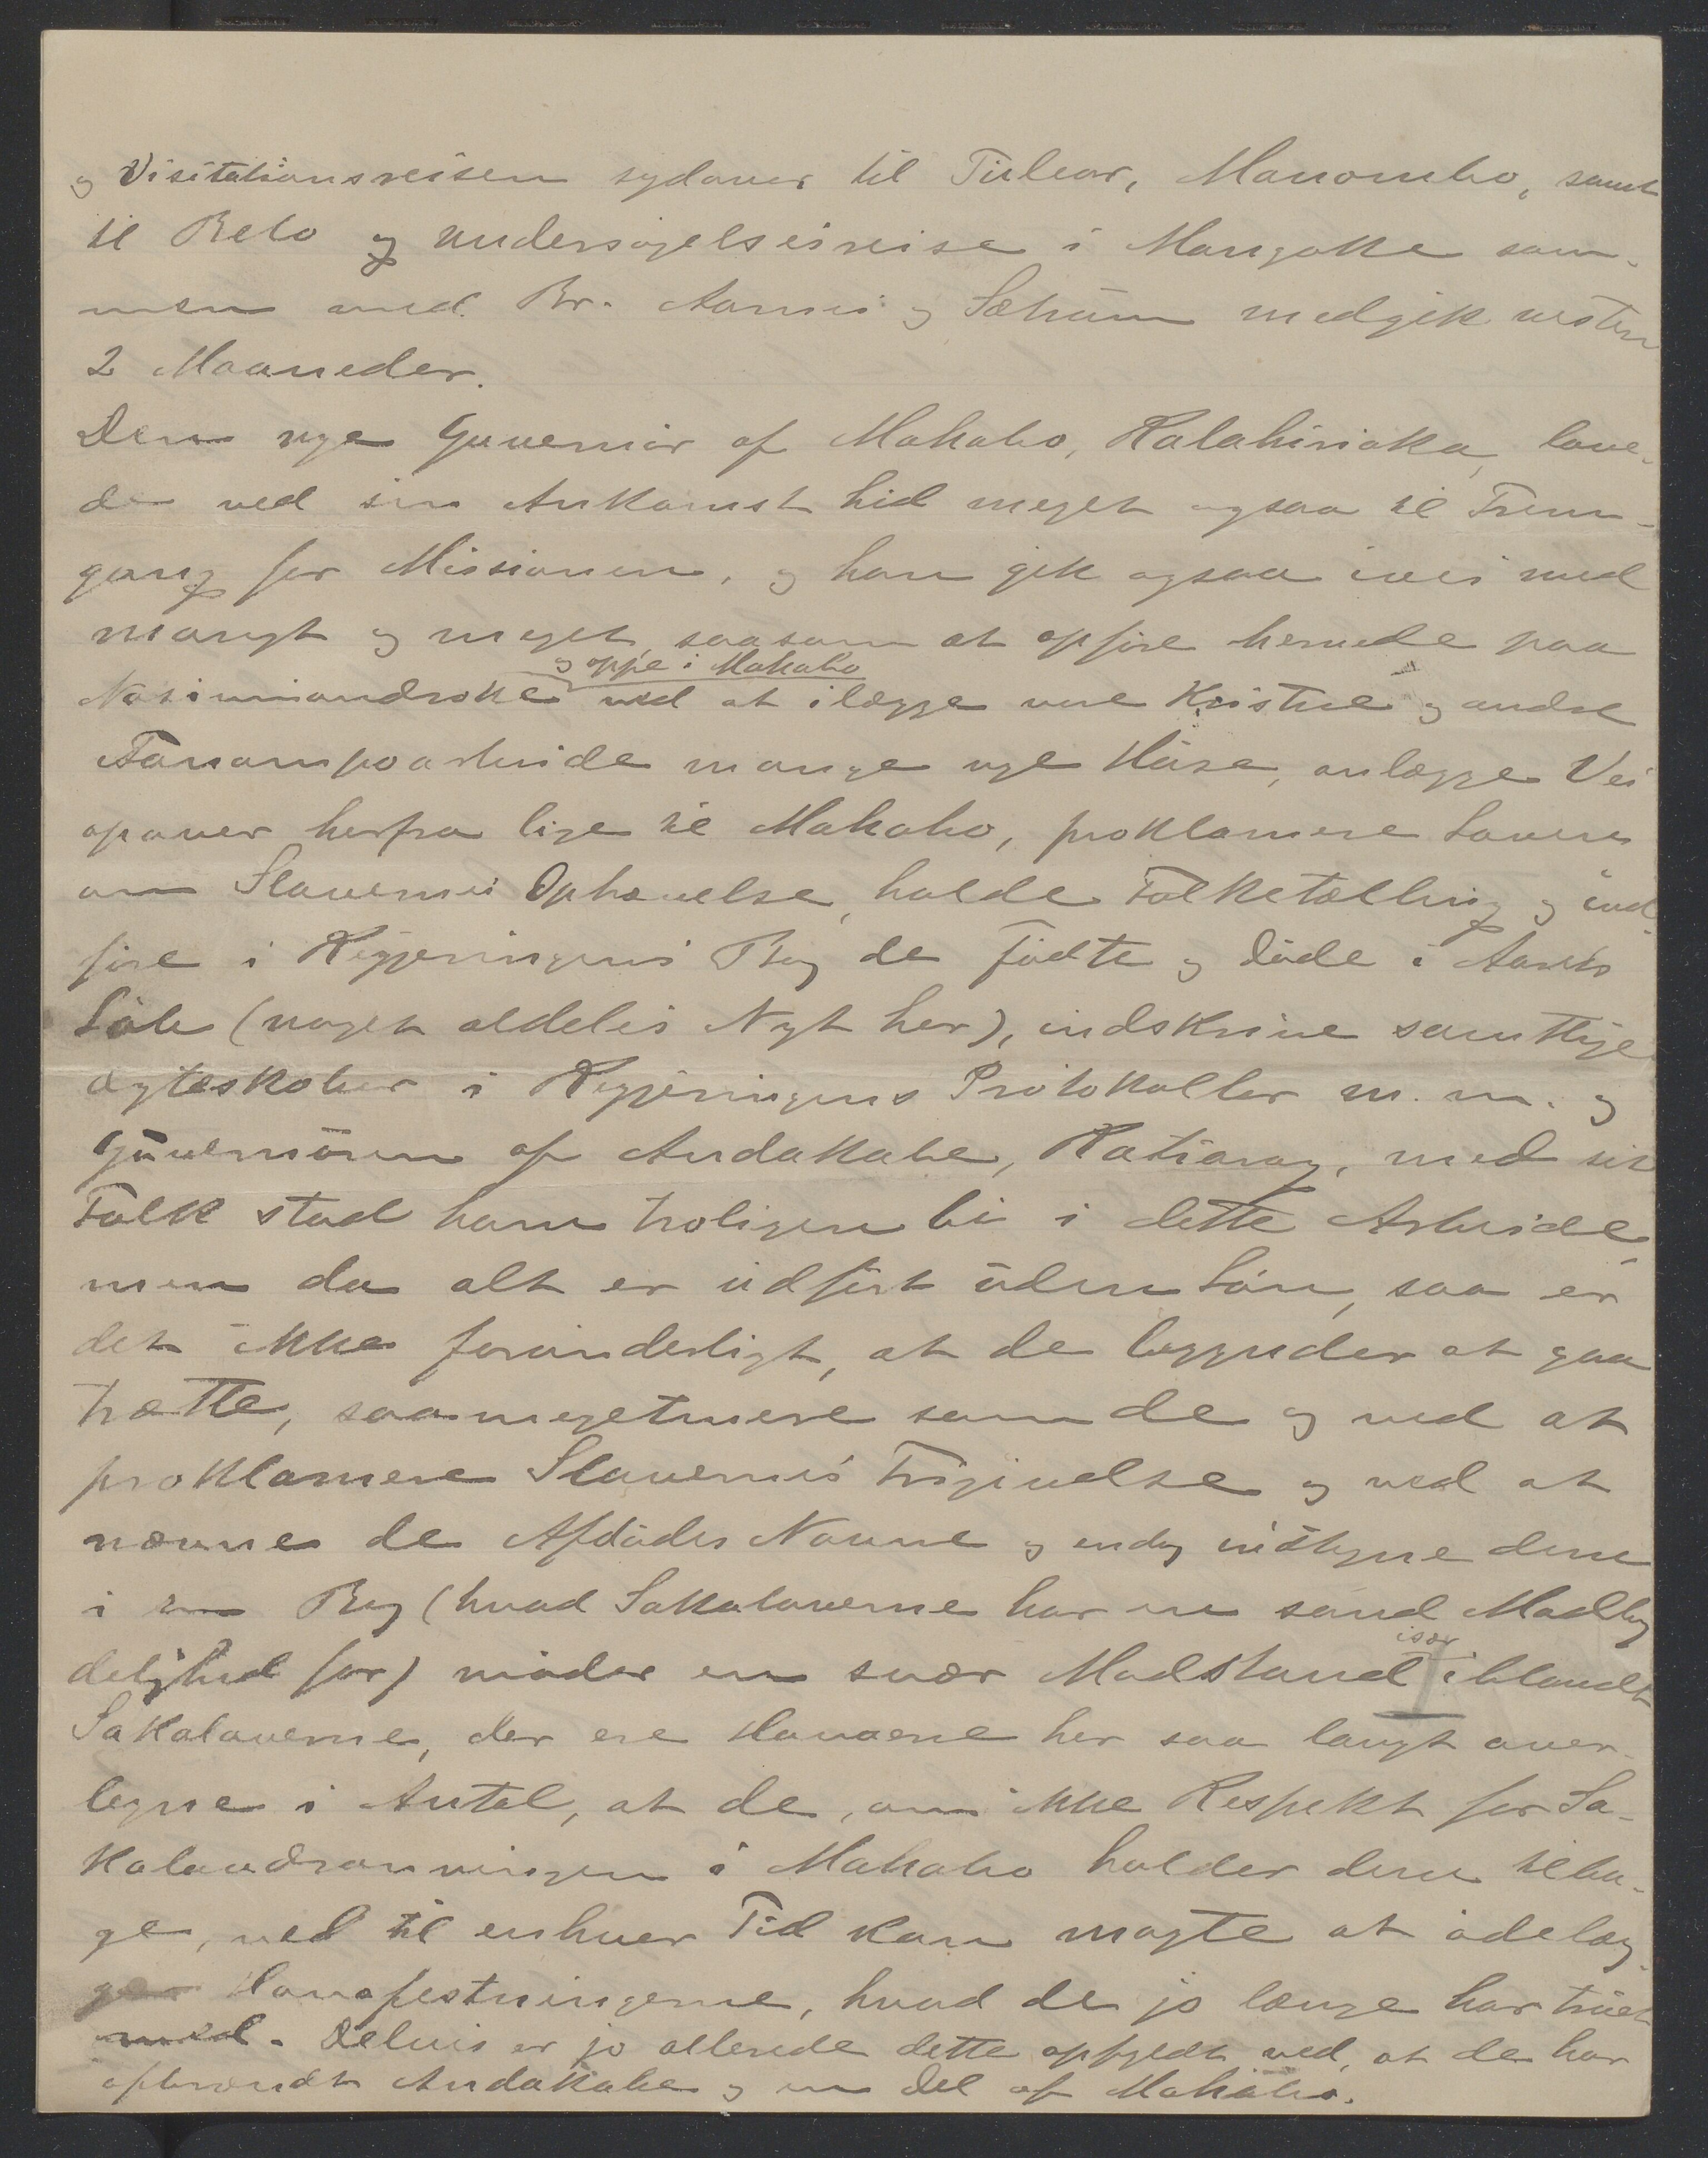 og Visitationsreisen sydover til Tulear, Manombo, samt
til Belo og Undersøgelsesreise i Mangoke sam-
men med Br. Aanes og Sæhum medgik næsten
2 Maaneder.
Den nye Guvernør af Mahabo, Ralahiriaka, love-
de ved sin Ankomst hid meget ogsaa til Frem-
gang for Missionen, og han gik ogsaa ivei med
mangt og meget, saasom at opføre hernede paa
og oppe i Mahabo
Nosimiandroke ved at ilægge vore Kristne og andre
Fanompoarbeide mange nye Huse, anlægge Vei
opover herfra lige til Mahabo, proklamere Loven
om Slavernes Ophævelse, holde Folketælling og ind-
føre i Regjeringens Bog de fødte og døde i Aarets
Løb (noget aldeles Nyt her), indskrive samtlige
Ægteskaber i Regjeringens Protokoller m. m. og
Guvernøren af Andakabe, Ratiaray, med sit
Folk stod ham troligen bi i dette Arbeide,
men da alt er udført uden Løn, saa er
det ikke forunderligt, at de begynder at gaa
trætte, saameget mere som de og ved at
proklamere Slavernes Frigivelse og ved at
nævne de Afdødes Navne og endog indtegne dem
i en Bog (hvad Sakalaverne har en sand Modby-
delighed for) møder en svær Modstand især iblandt
Sakalaverne, der ere Hovaerne her saa langt over-
legne i Antal, at de, om ikke Respekt for Sa-
kalavdronningen i Mahabo holder dem tilba-
ge, ved til enhver Tid kan magte at ødelæg-
ge Hovafestningerne, hvad de jo længe har truet
med. Delvis er jo allerede dette opfyldt ved, at de har
opbrændt Andakabe og en Del af Mahabo.